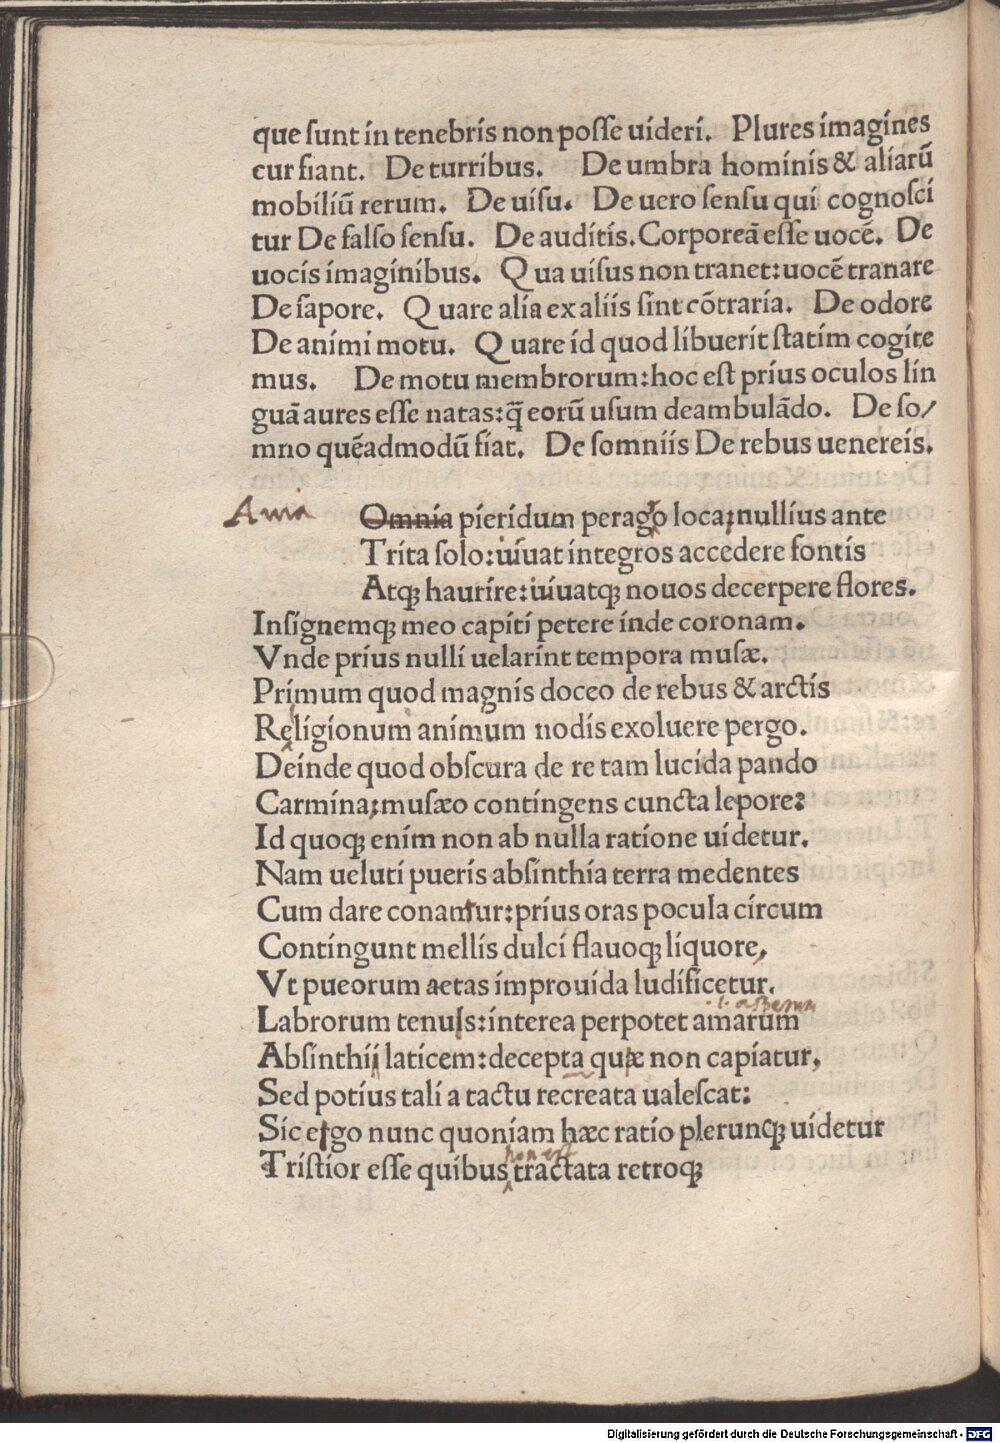 que ſunt in tenebris non poſſe uideri. Plures imagines
cur fiant. De turribus. De umbra hominis & aliarũ
mobiliũ rerum. De uiſu. De uero ſenſu qui cognoſci
tur De falſo ſenſu. De auditis. Corporeã eſſe uocẽ. De
uocis imaginibus. Qua uiſus non tranet: uocẽ tranare
De ſapore. Quare alia ex aliis ſint cõtraria. De odore
De animi motu. Quare id quod libuerit ſtatim cogite
mus. De motu membrorum: hoc eſt prius oculos lin
guã aures eſſe natas: q̃ eorũ uſum deambulãdo. De ſo/
mno quẽadmodũ fiat. De ſomniis De rebus uenereis.
Auia Omnia pieridum perago loca: nullius ante
Trita ſolo: iuuat integros accedere fontis
Atqꝫ haurire: iuuatqꝫ nouos decerpere flores.
Inſignemqꝫ meo capiti petere inde coronam.
Vnde prius nulli uelarint tempora muſæ.
Primum quod magnis doceo de rebus & arctis
Religionum animum nodis exoluere pergo.
Deinde quod obſcura de re tam lucida pando
Carmina: muſæo contingens cuncta lepore:
Id quoqꝫ enim non ab nulla ratione uidetur.
Nam ueluti pueris abſinthia terra medentes
Cum dare conantur: prius oras pocula circum
Contingunt mellis dulci flauoqꝫ liquore,
Vt pueorum aetas improuida ludificetur.
l. asperum
Labrorum tenuſs: interea perpotet amarum
Abſinthii laticem: decepta quæ non capiatur,
Sed potius tali a tactu recreata ualeſcat:
Sic ergo nunc quoniam hæc ratio plerunqꝫ uidetur
non est
Triſtior eſſe quibus tractata retroqꝫ
Digitalisierung gefördert durch die Deutsche Forschungsgemeinschaft - DFG